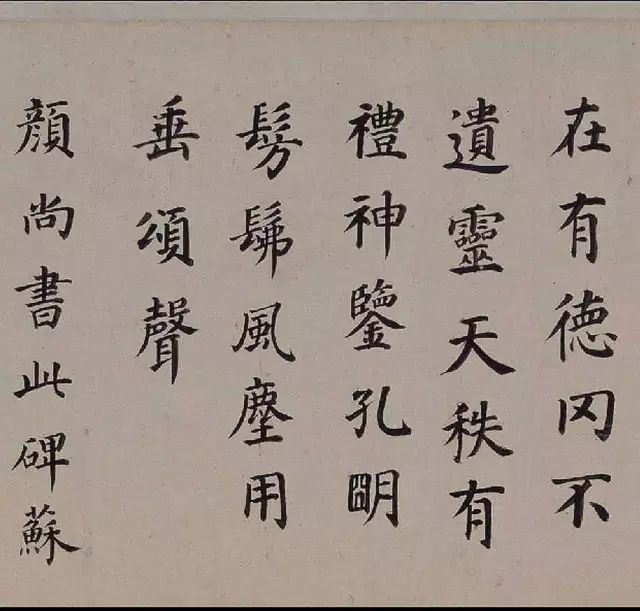 在有德冈不
遺靈天秩有
禮神鑒孔明
髣髴風塵用
垂頌聲
顏尚書此碑蘇